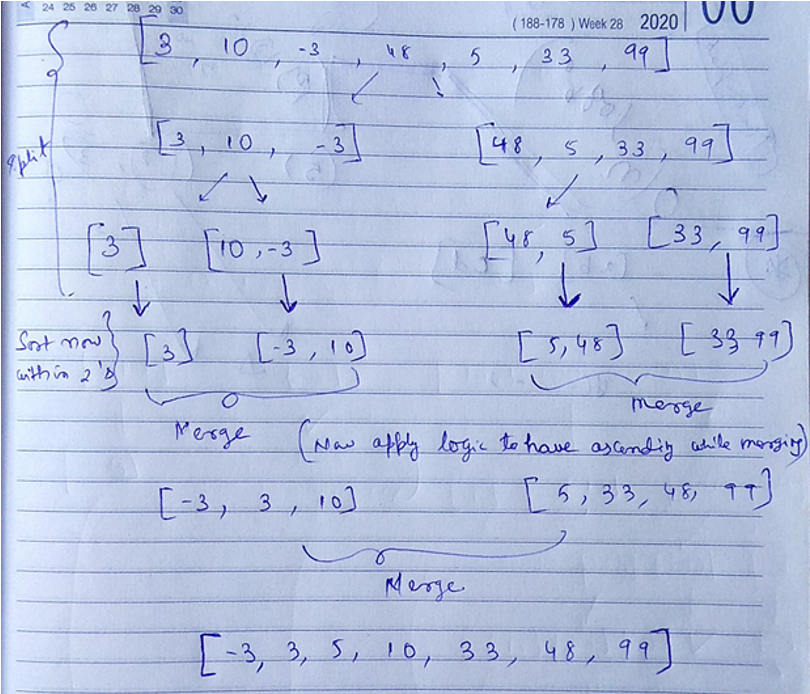 24 25 26 27 28 29 30
( 188-178 ) Week 28 2020
[3, 10, -3, 48, 5, 33, 99]
Split
[3, 10, -3] [48, 5, 33, 99]
[3] [10, -3] [48, 5] [33, 99]
Sort now within 2's} [3] [-3, 10] [5,48] [33 99]
Merge merge
(Now apply logic to have ascending while merging)
[-3, 3, 10] [5, 33, 48, 99]
Merge
[-3, 3, 5, 10, 33, 48, 99]